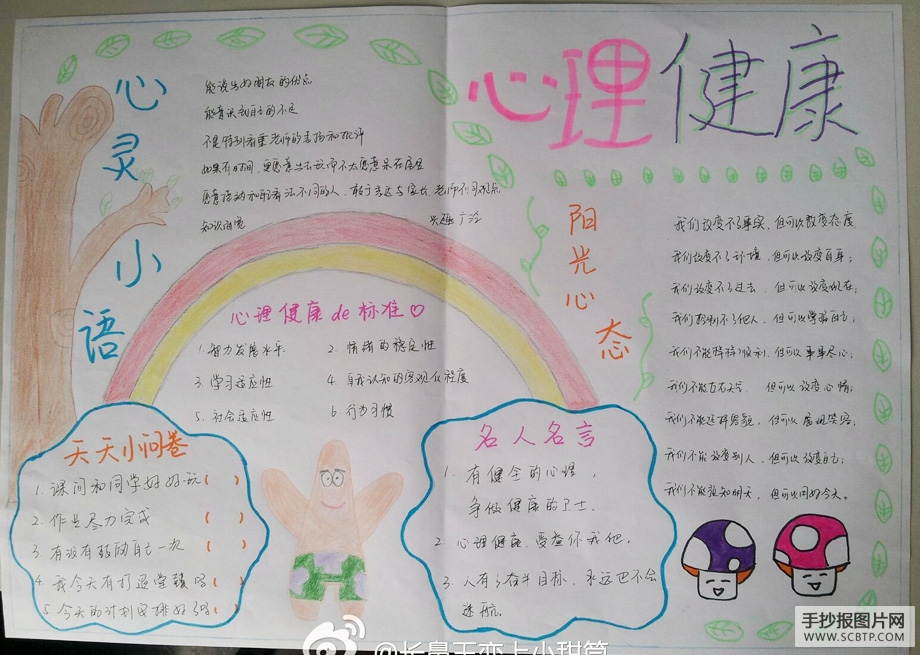 心理健康
心灵小语
能说出好朋友的优点
能意识到自己的不足
不是特别看重老师的表扬和批评
如果有时间,更愿意出去玩而不太愿意呆在屋里
愿意接动和看法不同的人,敢于表达与家长,老师不同观点
知识面宽 兴趣广泛
心理健康de标准♡
1.智力发展水平 2.情绪的稳定性
3.学习适应性 4.自我认知的客观化程度
5.社会适应性 6.行为习惯
阳光心态
我们改变不了事实,但可以改变态度
我们改变不了环境,但可以改变自身;
我们改变不了过去,但可以改变现在;
我们控制不了他人,但可以掌握自己;
我们不能样样顺利,但可以事事尽心;
我们不能左右天气,但可以改变心情;
我们不能选择容貌,但可以展现笑容;
我们不能改变别人,但可以改变自己;
我们不能预知明天,但可以用好今天。
天天小问卷
1.课间和同学好好玩( )
2.作业尽力完成( )
3.有没有鼓励自己一次( )
4.我今天有打退堂鼓吗( )
5.今天的计划安排好了吗( )
名人名言
1.有健全的心理,
争做健康的卫士.
2.心理健康,受益你我他.
3.人有了奋斗目标,永远也不会
迷航.
手抄报图片网
WWW.SCBTP.COM
@长鼻王恋上小甜筒